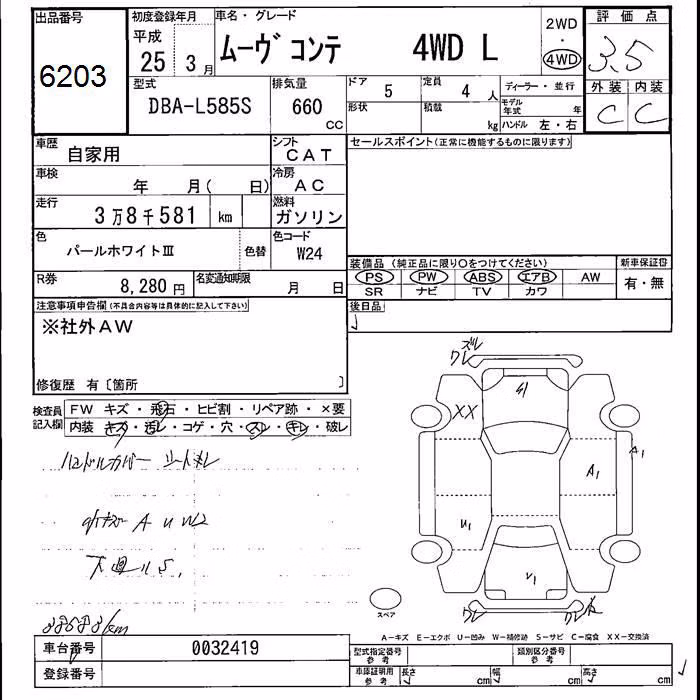 出品番号
6203
初度登録年月
平成
25 3 月
車名・グレード
ムーヴ コンテ 4WD L
2WD
・
4WD
評価点
3.5
外装 内装
C C
型式
DBA-L585S
排気量
660
CC
ドア 5
定員 4 人
形状
積載 kg
ディーラー・並行
モデル年式 年
ハンドル 左・右
車歴
自家用
シフト
CAT
セールスポイント(正常に機能するものに限ります)
車検
年 月( 日)
冷房
AC
走行
3万8千581 km
燃料
ガソリン
色
パールホワイトⅢ
色替
色コード
W24
装備品 (純正品に限り○をつけてください)
新車保証書
PS PW ABS エアB AW
有・無
SR ナビ TV カワ
R券
8,280 円
名変通知期限
月 日
後日品
注意事項申告欄(不具合内容等は具体的に記入して下さい)
※社外AW
修復歴 有〔箇所 〕
検査員記入欄
FW キズ・飛石・ヒビ割・リペア跡・×要
内装 キズ・汚レ・コゲ・穴・スレ・キレ・破レ
ハンドルカバー シートスレ
A U W2
下廻り S.
38583km
ズレ
ワレ
XX
A1
A1
U1
U1
ワレ
ワレ
スペア
A-キズ E-エクボ U-凹み W-補修跡 S-サビ C-腐食 XX-交換済
車台番号
0032419
登録番号
型式指定番号
参考
類別区分番号
参考
車庫証明用
参考
長さ cm 幅 cm 高さ cm